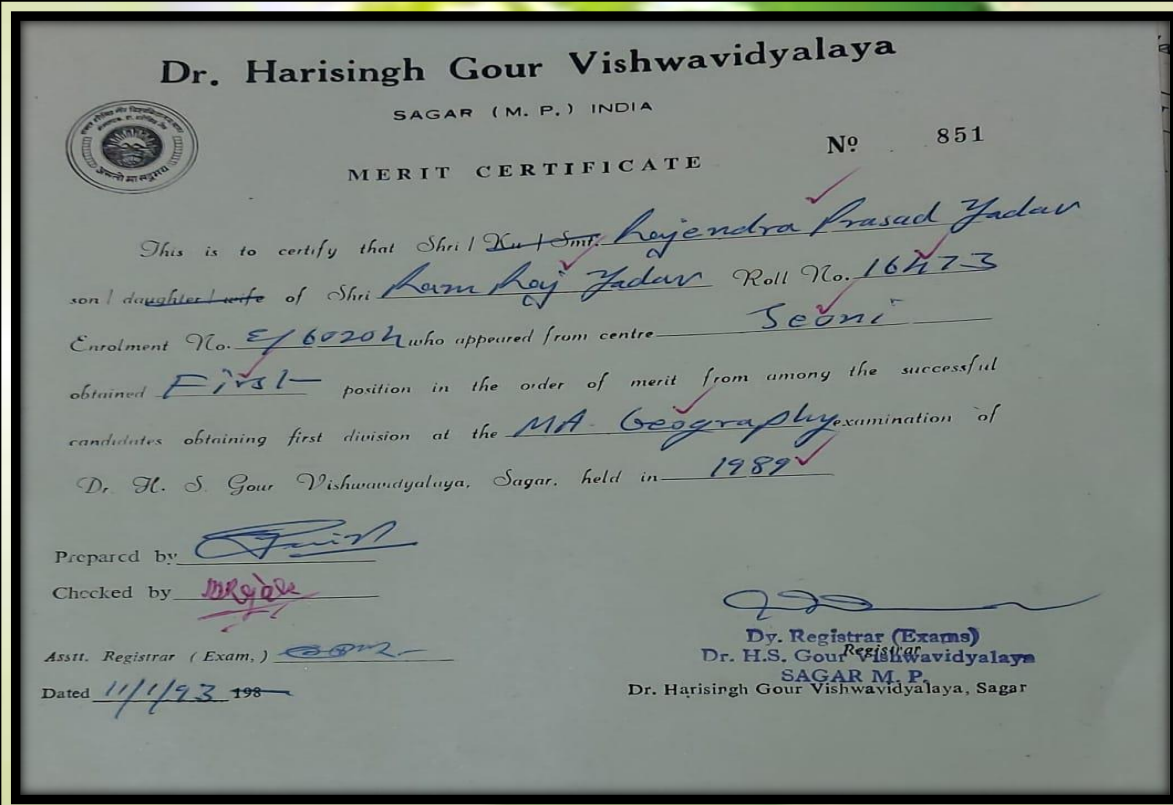 Dr. Harisingh Gour Vishwavidyalaya
SAGAR (M. P.) INDIA
Nº 851
MERIT CERTIFICATE
This is to certify that Shri / Ku / Smt. Rajendra Prasad Yadav
son / daughter / wife of Shri Ram Raj Yadav Roll No. 16473
Enrolment No. E/60204 who appeared from centre Seoni
obtained First position in the order of merit from among the successful
candidates obtaining first division at the MA. Geography examination of
Dr. H. S. Gour Vishwavidyalaya, Sagar, held in 1989
Prepared by
Checked by
Asstt. Registrar (Exam,)
Dy. Registrar (Exams)
Registrar
Dr. H.S. Gour Vishwavidyalaya
SAGAR M. P.
Dated 11/1/93 198
Dr. Harisingh Gour Vishwavidyalaya, Sagar